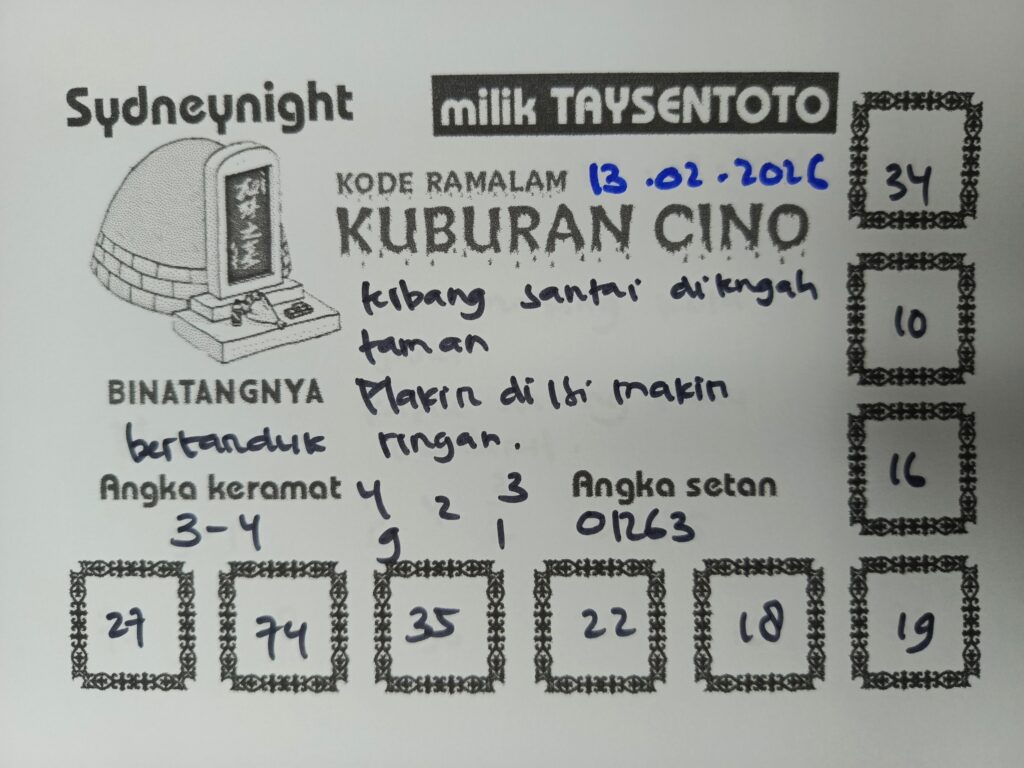 Sydneynight
milik TAYSENTOTO
KODE RAMALAM 13.02.2026
KUBURAN CINO
santai
taman
BINATANGNYA
makin
bertanduk
ringan.
Angka keramat
3-4
4 2 3
9 1
Angka setan
01263
34
10
16
27 74 35 22 18 19